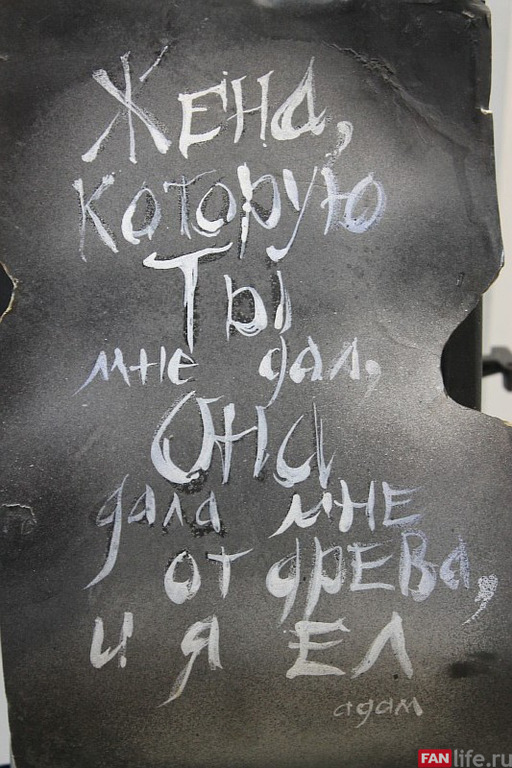 Жена,
которую
Ты
мне дал,
Она
дала мне
от древа,
и я ел
адам
FANlife.ru